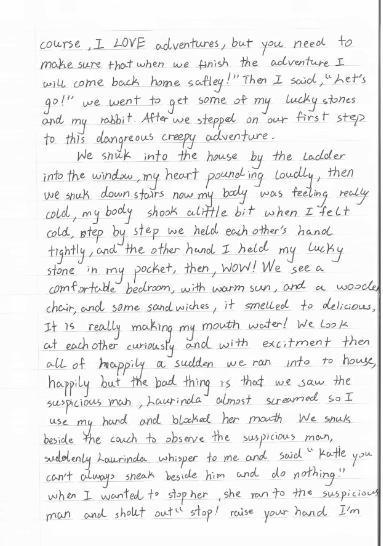 course, I LOVE adventures, but you need to
make sure that when we finish the adventure I
will come back home safley!" Then I said, "Let's
go!" we went to get some of my lucky stones
and my rabbit. After we stepped on our first step
to this dangreous creepy adventure.
We snuk into the house by the Ladder
into the window, my heart pounding loudly, then
we snuk down stairs now my body was feeling really
cold, my body shook alittle bit when I felt
cold, step by step we held eachother's hand
tightly, and the other hand I held my lucky
stone in my pocket, then, WOW! We see a
comfortable bedroom, with warm sun, and a wooden
chair, and some sandwiches, it smelled to delicious,
It is really making my mouth water! We Look
at eachother curiously and with excitment then
all of happily a sudden we ran into to house,
happily but the bad thing is that we saw the
suspicious man, Laurinda almost screamed so I
use my hand and blocked her mouth We snuk
beside the cauch to observe the suspicious man,
suddenly Laurinda whisper to me and said "Katie you
can't always sneak beside him and do nothing!"
when I wanted to stop her, she ran to the suspicious
man and shout out" stop! raise your hand I'm